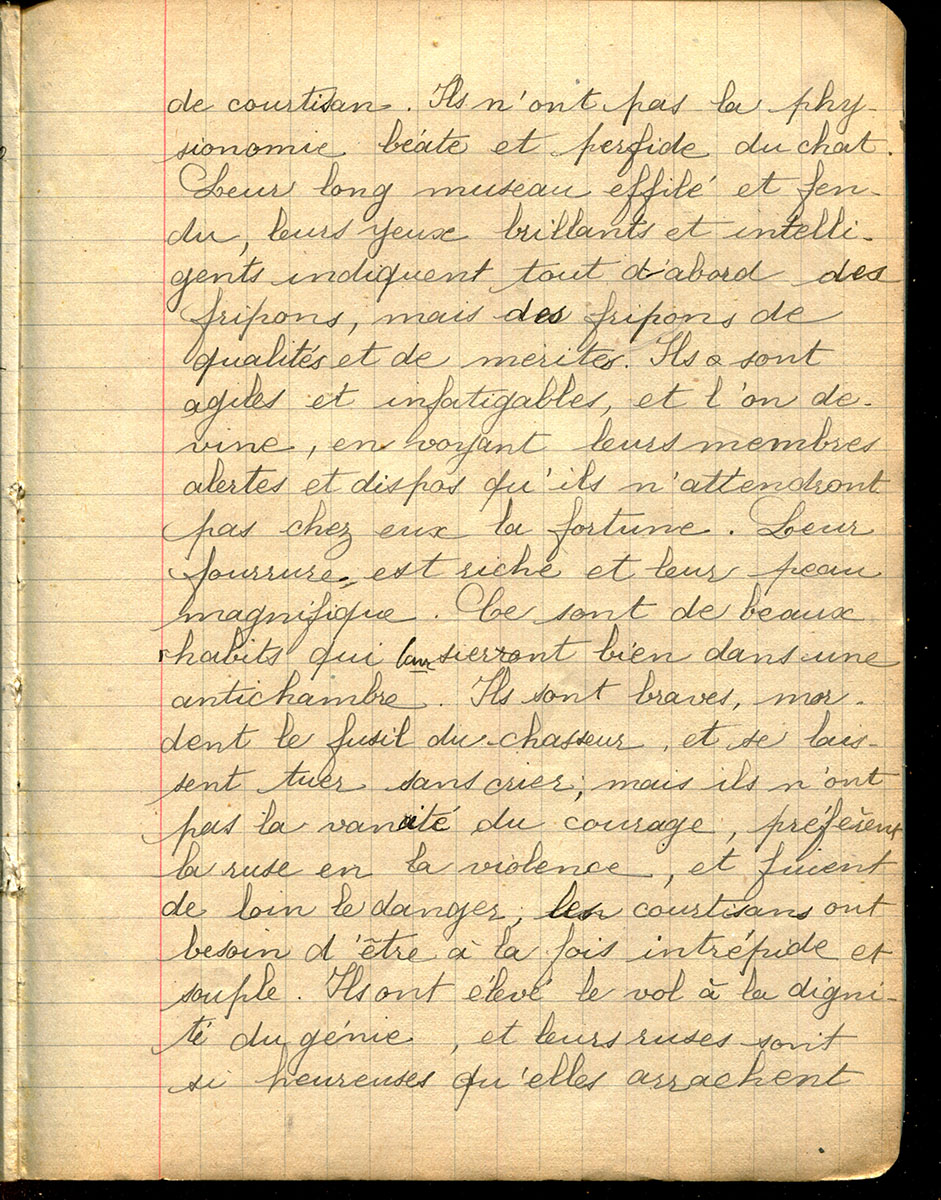 de courtisan. Ils n'ont pas la phy-
sionomie béate et perfide du chat.
Leur long museau effilé et fen-
du, leurs yeux brillants et intelli-
gents indiquent tout d'abord des
fripons, mais des fripons de
qualités et de merites. Ils sont
agiles et infatigables, et l'on de-
vine, en voyant leurs membres
alertes et dispos qu'ils n'attendront
pas chez eux la fortune. Leur
fourrure est riche et leur peau
magnifique. Ce sont de beaux
habits qui leur sierront bien dans une
antichambre. Ils sont braves, mor-
dent le fusil du chasseur, et se lais-
sent tuer sans crier; mais ils n'ont
pas la vanité du courage, préfèrent
la ruse en la violence, et fuient
de loin le danger; les courtisans ont
besoin d'être à la fois intrépide et
souple. Ils ont élevé le vol à la digni-
té du génie, et leurs ruses sont
si heureuses qu'elles arrachent